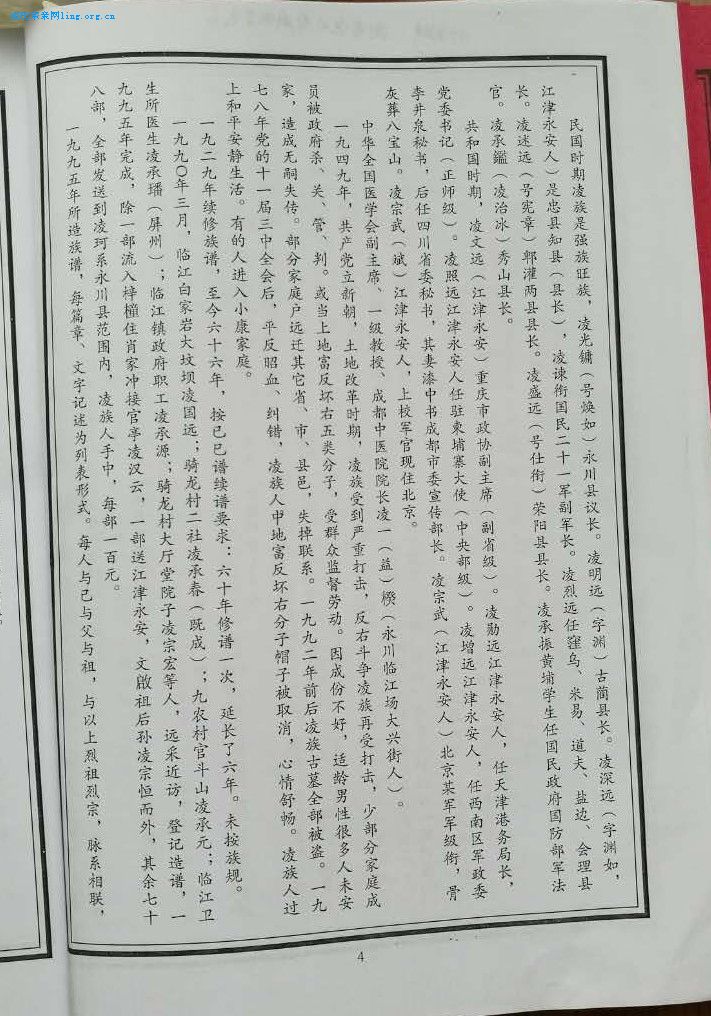 凌氏宗亲网ling.org.cn
民国时期凌族是强族旺族，凌光镛（号焕如）永川县议长。凌明远（字渊）古蔺县长。凌深远（字渊如，
江津永安人）是忠县知县（县长），凌谏衔国民二十一军副军长。凌烈远任窪乌、米易、道夫、盐边、会理县
长。凌述远（号宪章）郫灌两县县长。凌盛远（号仕衔）荥阳县县长。凌承振黄埔学生任国民政府国防部军法
官。凌承鑑（凌治冰）秀山县长。
共和国时期，凌文远（江津永安）重庆市政协副主席（副省级）。凌勋远江津永安人，任天津港务局长，
党委书记（正师级）。凌照远江津永安人任驻柬埔寨大使（中央部级）。凌增远江津永安人，任西南区军政委
李井泉秘书，后任四川省委秘书，其妻漆中书成都市委宣传部长。凌宗武（江津永安人）北京某军军级衔，骨
灰葬八宝山。凌宗武（斌）江津永安人，上校军官现住北京。
中华全国医学会副主席、一级教授、成都中医院院长凌一（益）楑（永川临江场大兴街人）。
一九四九年，共产党立新朝，土地改革时期，凌族受到严重打击，反右斗争凌族再受打击，少部分家庭成
员被政府杀、关、管、判。或当上地富反坏右五类分子，受群众监督劳动。因成份不好，适龄男性很多人未安
家，造成无嗣失传。部分家庭户远迁其它省、市、县邑，失掉联系。一九九二年前后凌族古墓全部被盗。一九
七八年党的十一届三中全会后，平反昭血、纠错，凌族人中地富反坏右分子帽子被取消，心情舒畅。凌族人过
上和平安静生活。有的人进入小康家庭。
一九二九年续修族谱，至今六十六年，按已巳谱续谱要求：六十年修谱一次，延长了六年。未按族规。
一九九〇年三月，临江白家岩大坟坝凌国远；骑龙村二社凌承春（既成）；九农村官斗山凌承元；临江卫
生所医生凌承璠（屏州）；临江镇政府职工凌承源；骑龙村大厅堂院子凌宗宏等人，远采近访，登记造谱，一
九九五年完成，除一部流入梓橦住肖家冲接官亭凌汉云，一部送江津永安，文啟祖后孙凌宗恒而外，其余七十
八部，全部发送到凌珂系永川县范围内，凌族人手中，每部一百元。
一九九五年所造族谱，每篇章、文字记述为列表形式。每人与己与父与祖，与以上烈祖烈宗，脉系相联，
4